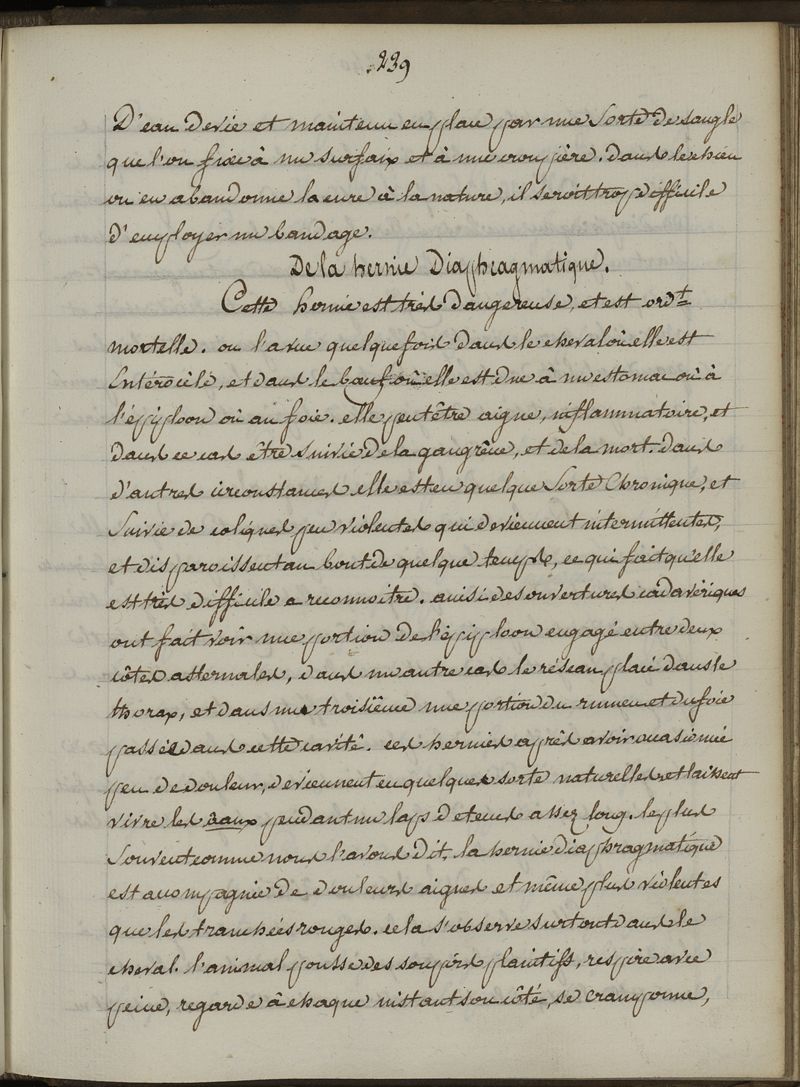 239
D'eau devie et maintenu en place par une sorte de sangle
que l'on fixe à un surfaix et à une croupière. dans le chien
on en abandonne la cure à la nature, il seroit trop difficile
d'employer un bandage.
De la hernie Diaphragmatique.
Cette hernie est très dangereuse, et est ord.t
mortelle. on l'a vue quelquefois dans le cheval où elle est
Entérocèle, et dans le bœuf où elle est due à un estomac où à
l'épiploon où au foie. elle peut être aigue, inflammatoire, et
dans ce cas être suivie de la gangrêne, et de la mort. dans
d'autres circonstances elle est en quelque sorte Chronique, et
suivie de coliques peu violentes qui deviennent intermittentes,
et disparoissent au bout de quelque temps, ce qui fait qu'elle
est très difficile a reconnoitre. ainsi des ouvertures cadavériques
ont fait voir une portion de l'épiploon engagé entre deux
côtes asternales, dans un autre cas le réseau placé dans le
thorax, et dans un troisième une portion du rumen et du foie
passée dans cette cavité. ces hernies après avoir occasionné
peu de douleur, deviennent en quelques sorte naturelles et laissent
vivre les aaux pendant un laps de tems assez long. le plus
souvent comme nous l'avons dit, la hernie diaphragmatique
est accompagnie de douleurs aigues et même plus violentes
que les tranchées rouges. cela s'observe surtout dans le
cheval. l'animal pousse des soupirs plaintifs, respire avec
peine, regarde à chaque instant son côté, se cramponne,